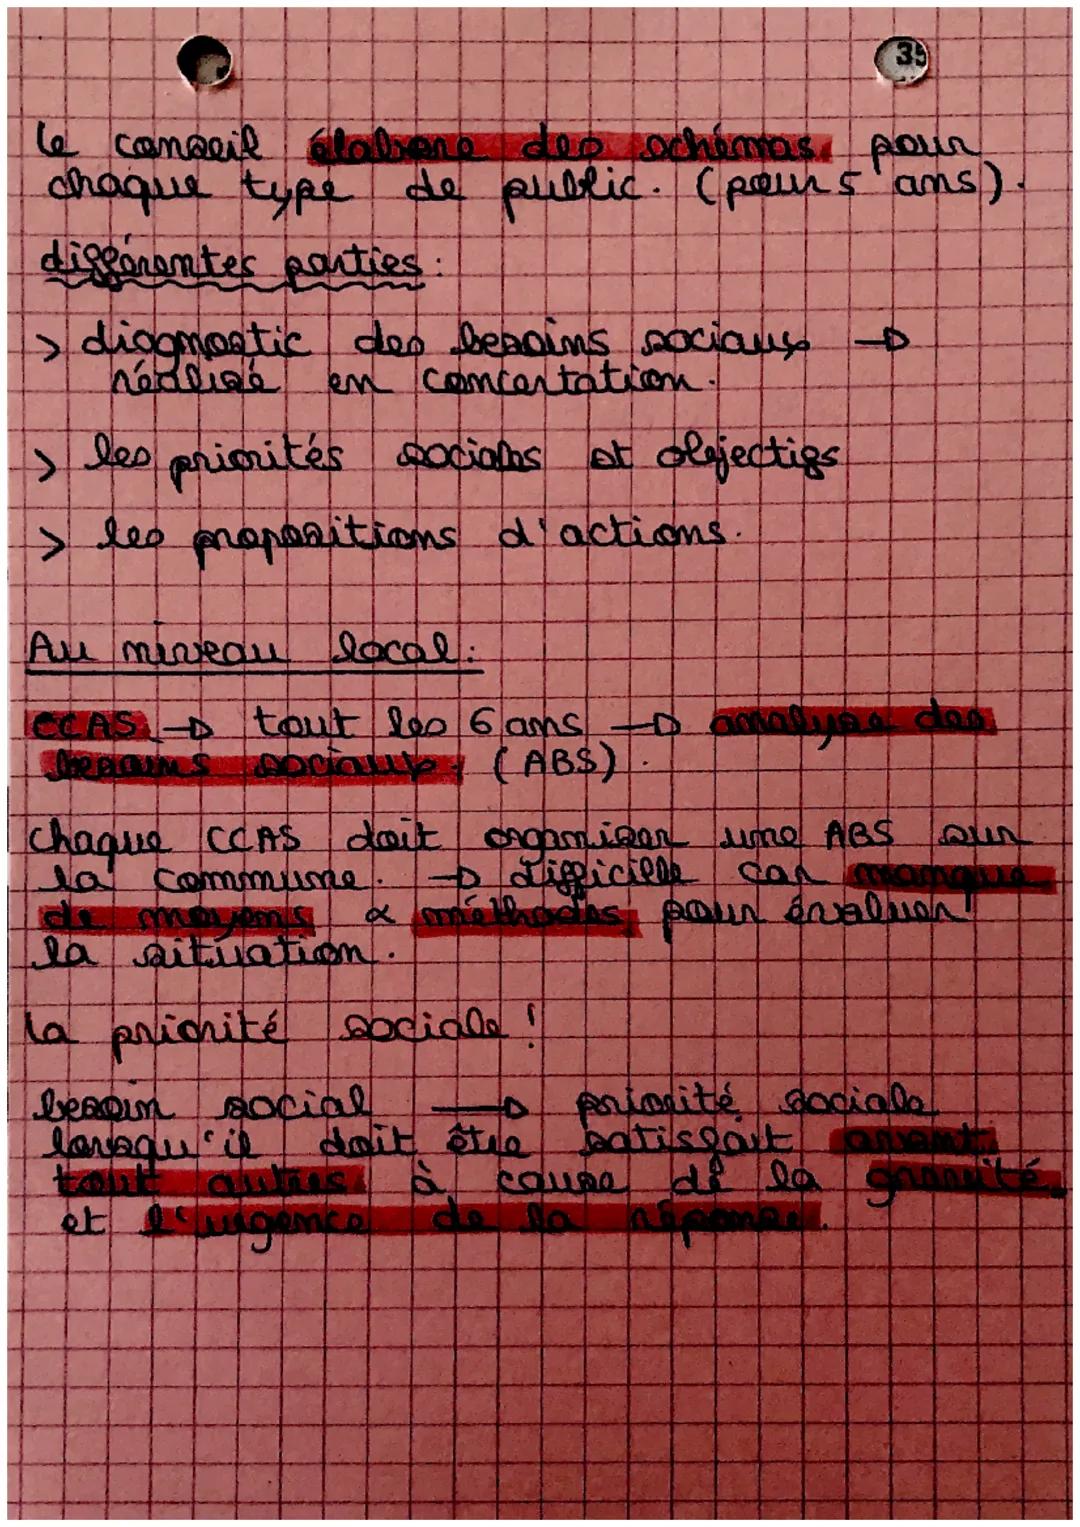 35
le conseil élabore des schémas pour
chaque type de public. (pour 5 ans).
différentes parties :
> diagnostic des besoins sociaux →
réalisé en concertation.
> les priorités sociales et objectifs
> les propositions d'actions.
Au niveau local :
CCAS → tout les 6 ans → analyse des
besoins sociaux. (ABS).
Chaque CCAS doit organiser une ABS sur
la commune. → difficille car manque
de moyens & méthodes pour évaluer
la situation.
la priorité sociale !
besoin social → priorité sociale
lorsqu'il doit être satisfait avant
tout autres à cause de la gravité
et l'urgence de la réponse.